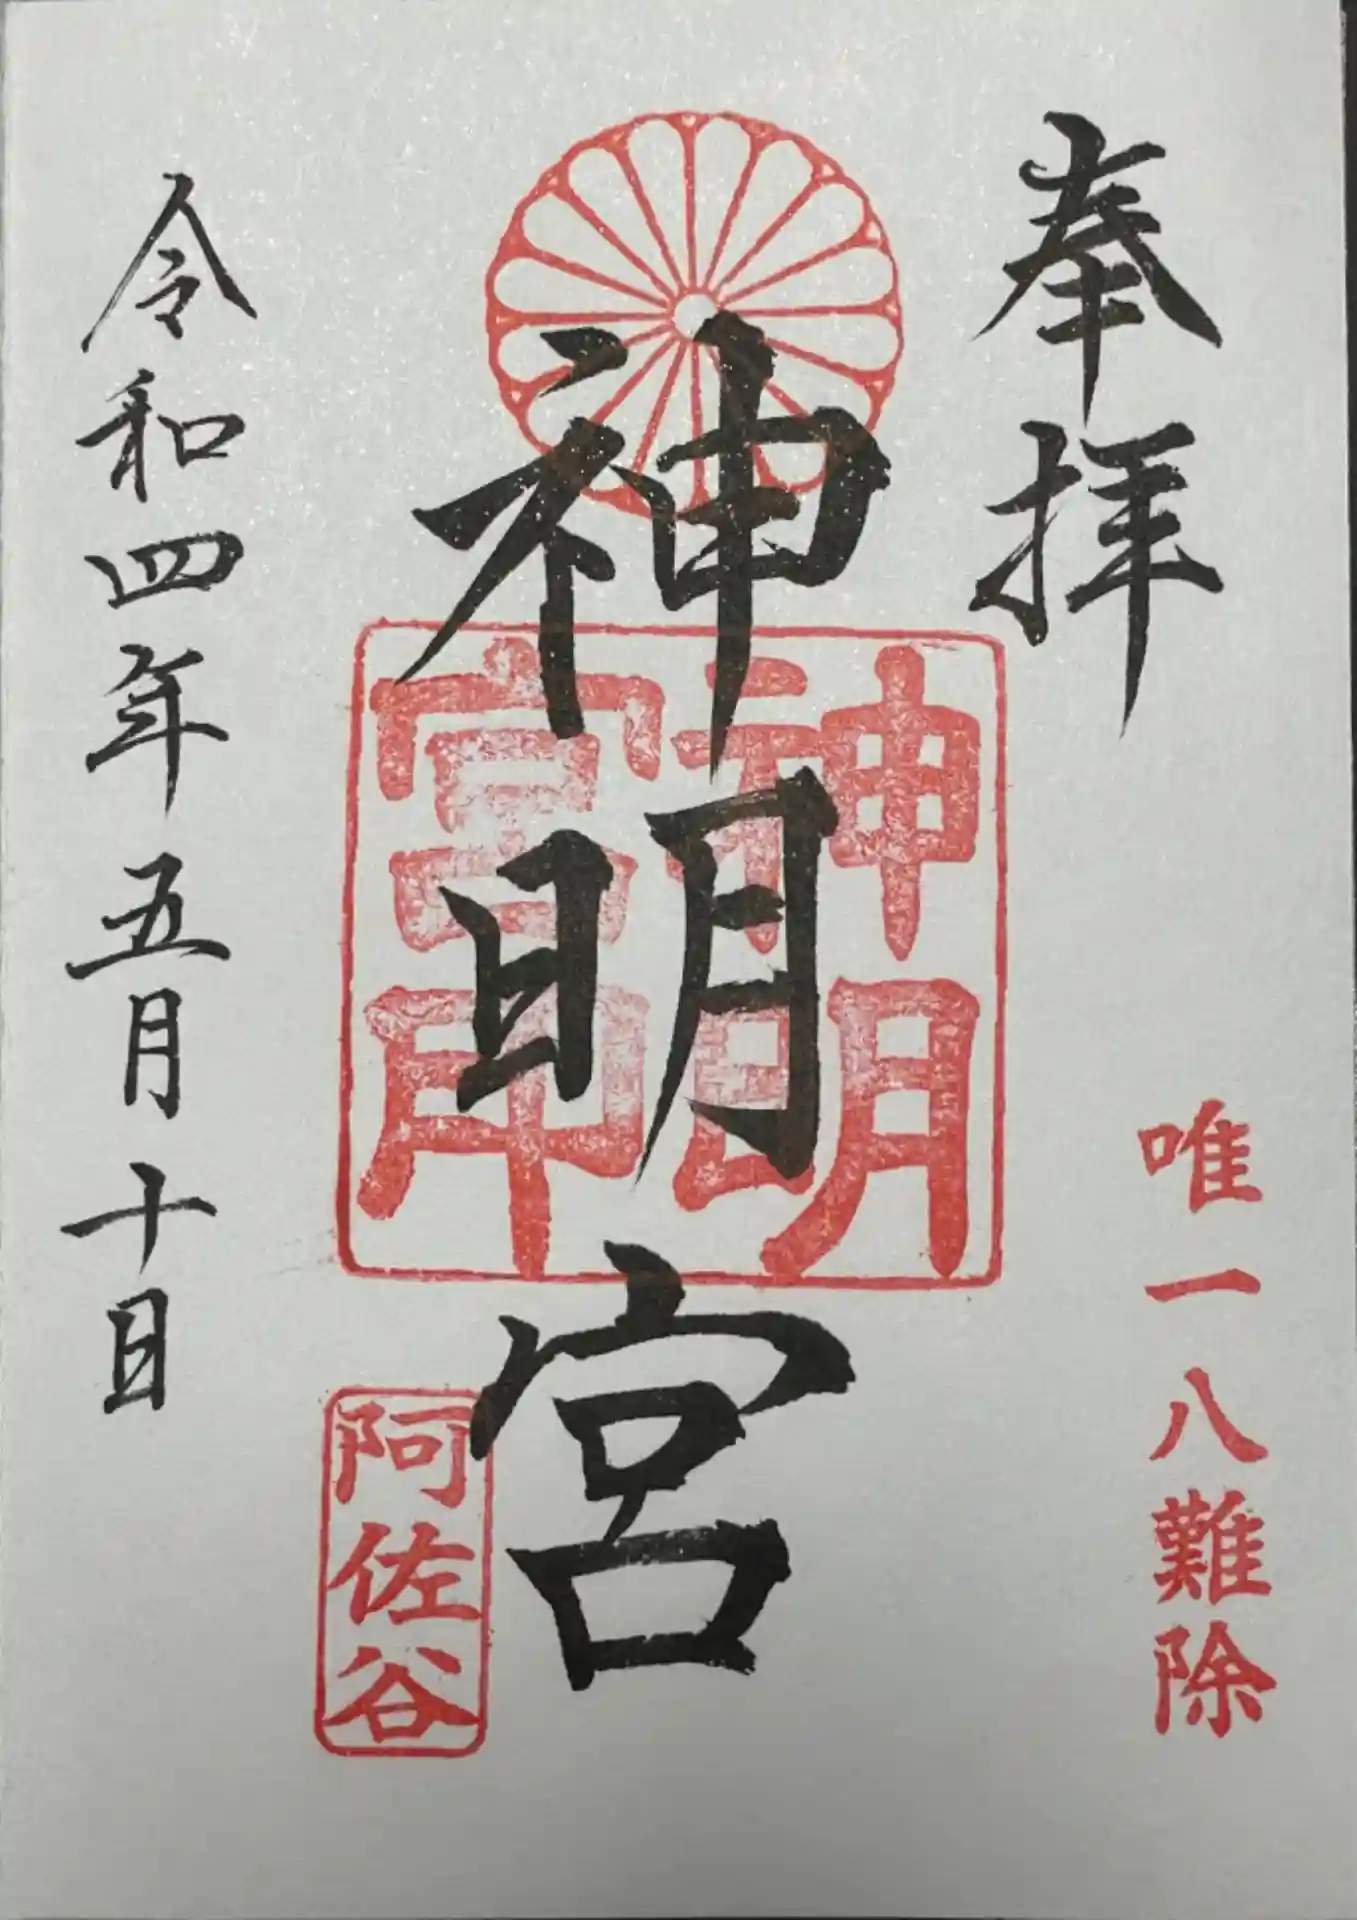 奉拝
唯一八難除
神明宮
神明宮印
阿佐谷
令和四年五月十日